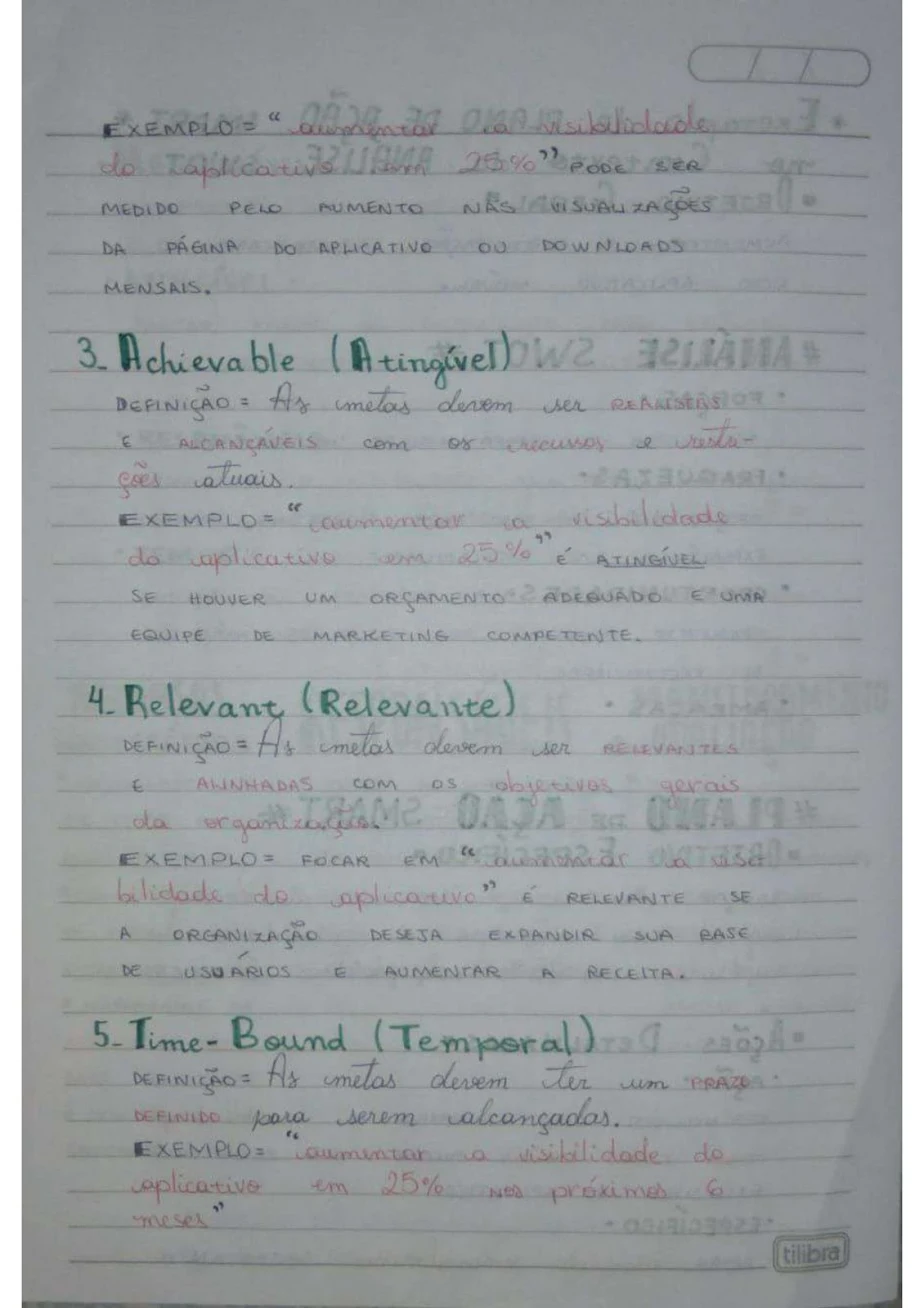 EXEMPLO = “aumentar a visibilidade
do aplicativo em 25%” PODE SER
MEDIDO PELO AUMENTO NAS VISUALIZAÇÕES
DA PÁGINA DO APLICATIVO OU DOWNLOADS
MENSAIS.
3. Achievable (Atingível)
DEFINIÇÃO = As metas devem ser REALISTAS
E ALCANÇÁVEIS com os recursos e restri-
ções atuais.
EXEMPLO = “aumentar a visibilidade
do aplicativo em 25%” É ATINGÍVEL
SE HOUVER UM ORÇAMENTO ADEQUADO E UMA
EQUIPE DE MARKETING COMPETENTE.
4. Relevant (Relevante)
DEFINIÇÃO = As metas devem ser RELEVANTES
E ALINHADAS COM OS objetivos gerais
da organização.
EXEMPLO = FOCAR EM “aumentar a visi
bilidade do aplicativo” É RELEVANTE SE
A ORGANIZAÇÃO DESEJA EXPANDIR SUA BASE
DE USUÁRIOS E AUMENTAR A RECEITA.
5. Time-Bound (Temporal)
DEFINIÇÃO = As metas devem ter um PRAZO
DEFINIDO para serem alcançadas.
EXEMPLO = “aumentar a visibilidade do
aplicativo em 25% nos próximos 6
meses”
tilibra